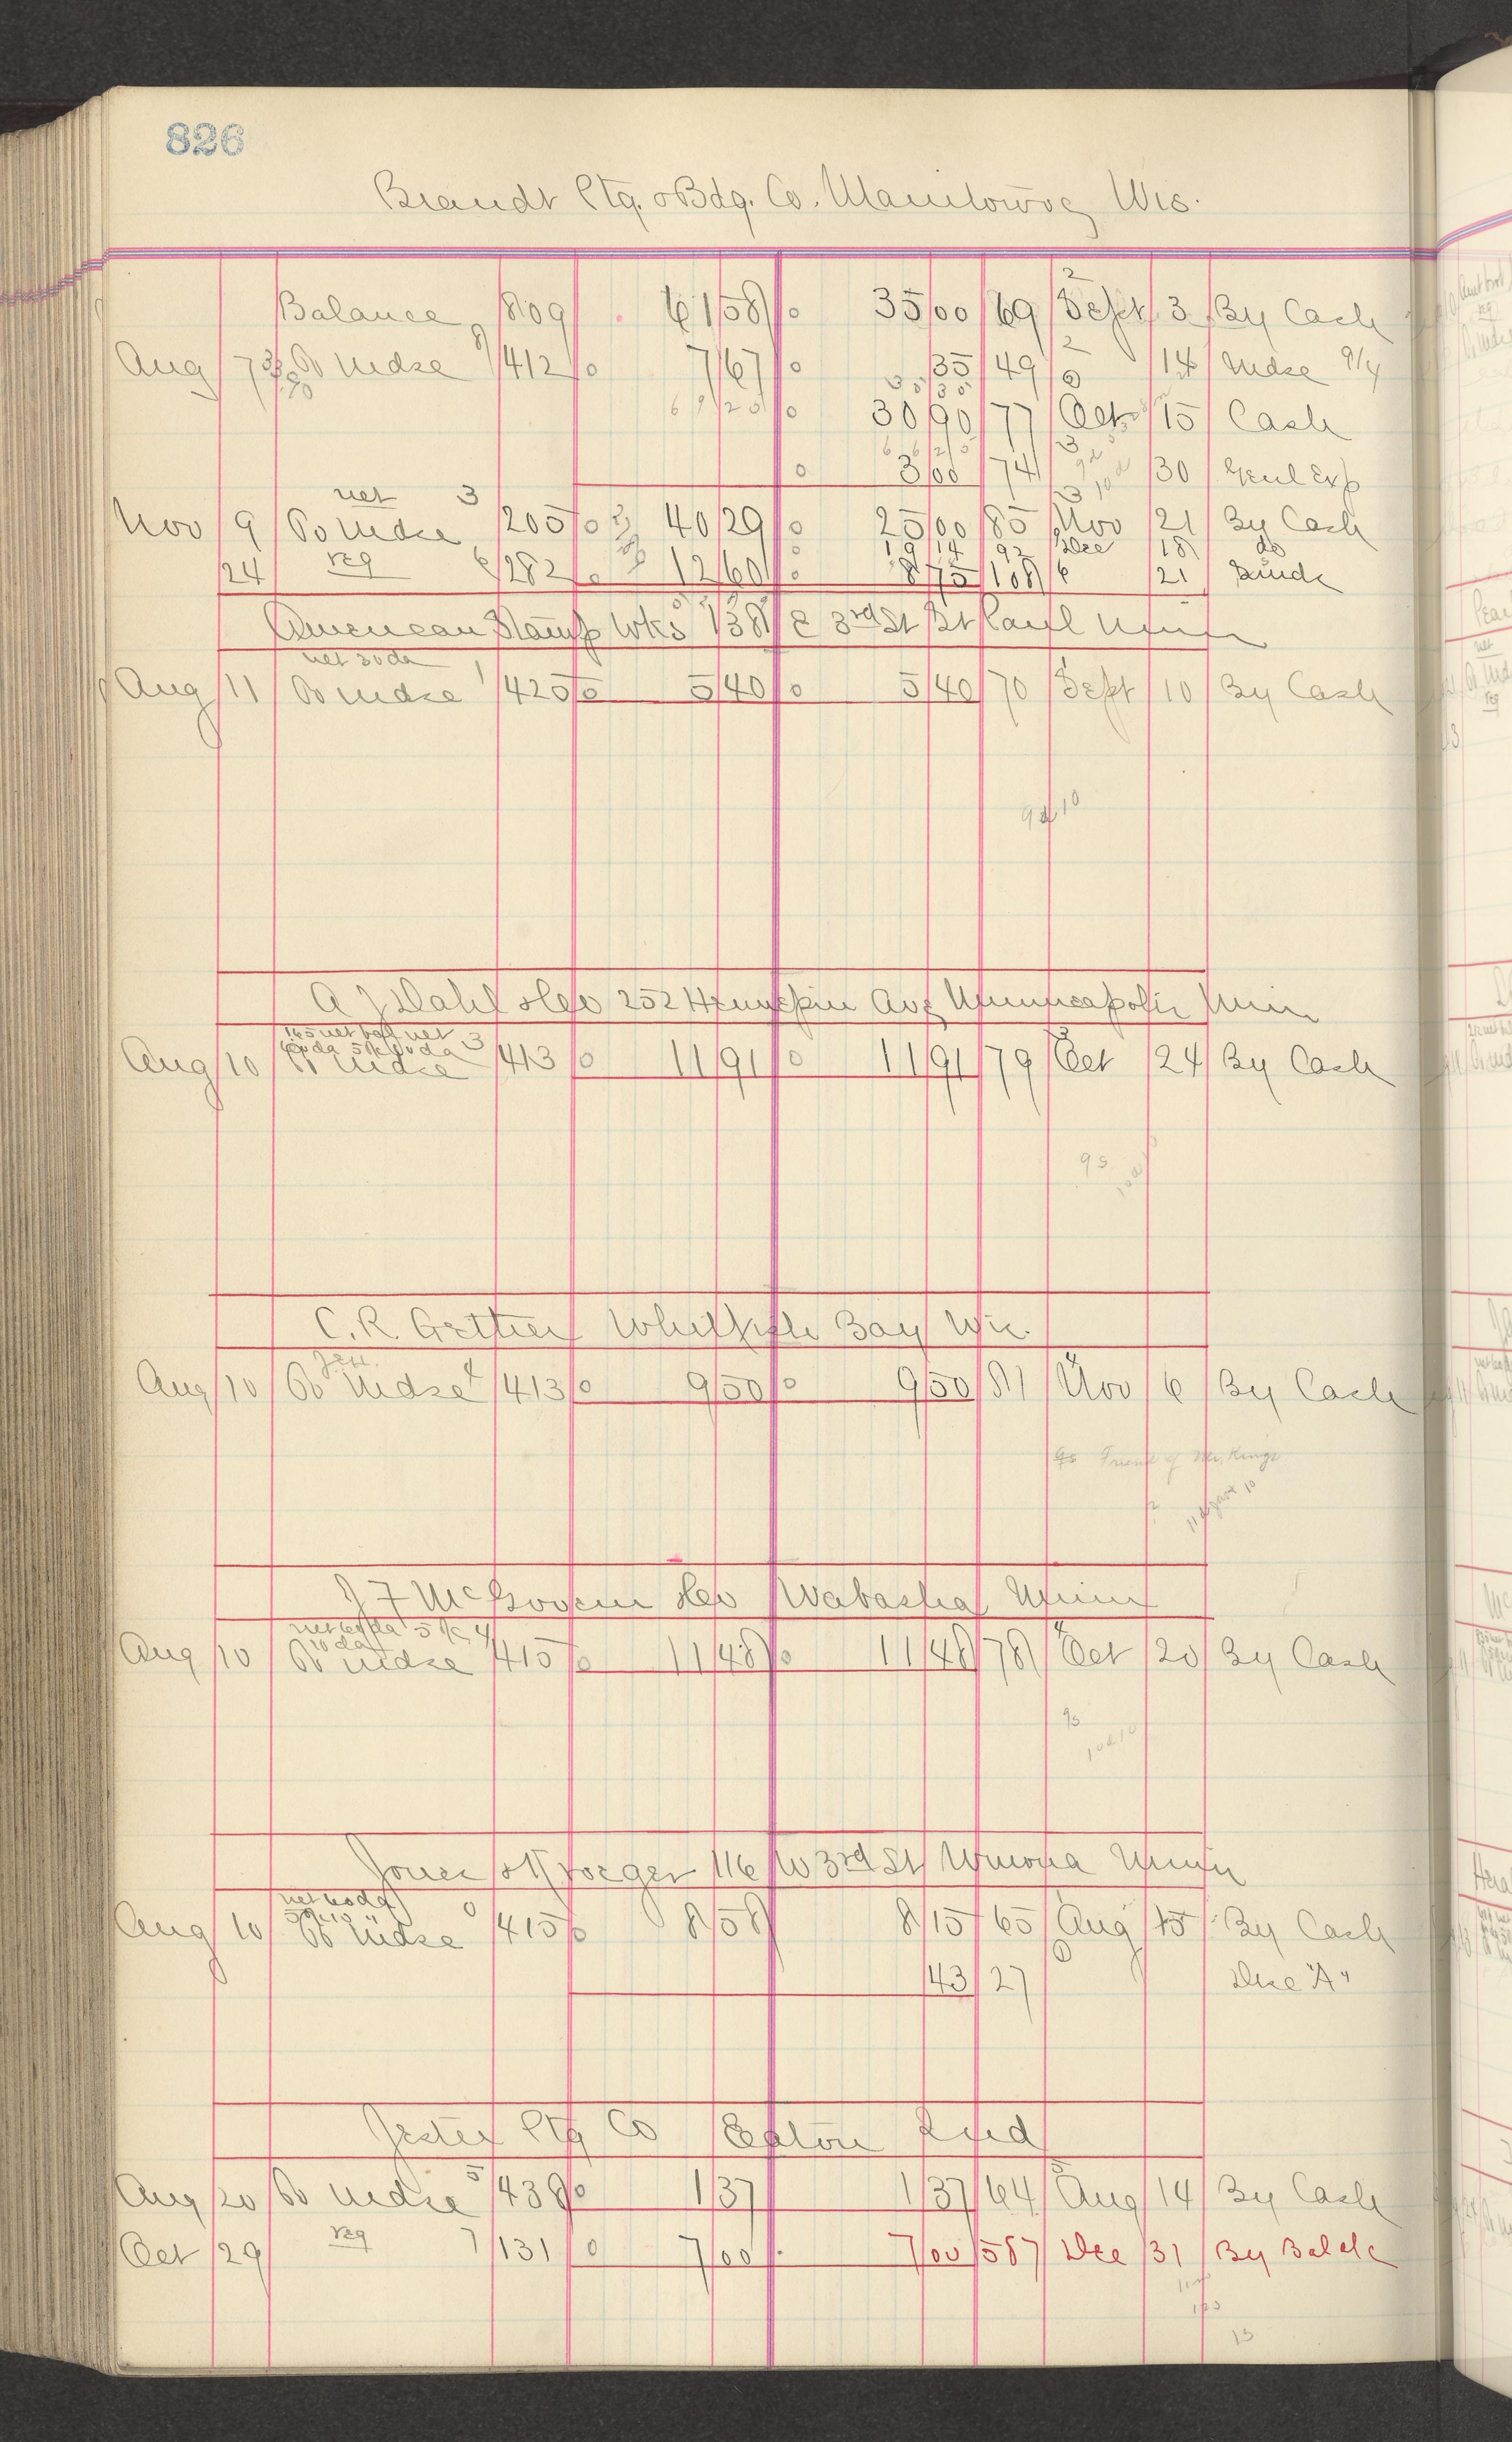 826
Brandt Ptg. & Bdg. Co. Manitowoc Wis.
Balance 809 61 58 0 35 00 69 Sept 3 By Cash
Aug 7 To Mdse 8 412 0 7 67 0 35 49 2 14 Mdse 9/4
69 25 0 30 90 77 Oct 15 Cash
0 3 00 74 3 30 Genl Exp
net 3
Nov 9 To Mdse 205 0 40 29 0 25 00 85 Nov 21 By Cash
19 14 92 Dec 18 do
24 reg 6 282 0 12 60 0 8 75 108 6 21
American Stamp Wks 138 E 3rd St St Paul Minn
net 30 da
Aug 11 To Mdse 1 425 0 5 40 0 5 40 70 Sept 10 By Cash
A J Dahl & Co 252 Hennepin Ave Minneapolis Minn
Aug 10 To Mdse 3 413 0 11 91 0 11 91 79 Oct 24 By Cash
95
C. R. Gether Whitefish Bay Wis.
Aug 10 To Mdse 4 413 0 9 50 0 9 50 81 Nov 6 By Cash
Friend of Mr. Kings
J F McGovern & Co Wabasha Minn
net 60 da 5%
10 da
Aug 10 To Mdse 4 415 0 11 48 0 11 48 78 Oct 20 By Cash
Jones & Kroeger 116 W 3rd St Winona Minn
net 60 da
Aug 10 To Mdse 0 415 0 8 58 8 15 65 Aug 15 By Cash
43 27 Disc "A"
Jester Ptg Co Eaton Ind
Aug 20 To Mdse 5 438 0 1 37 1 37 64 Aug 14 By Cash
Oct 29 reg 7 131 0 7 00 7 00 587 Dec 31 By Bal